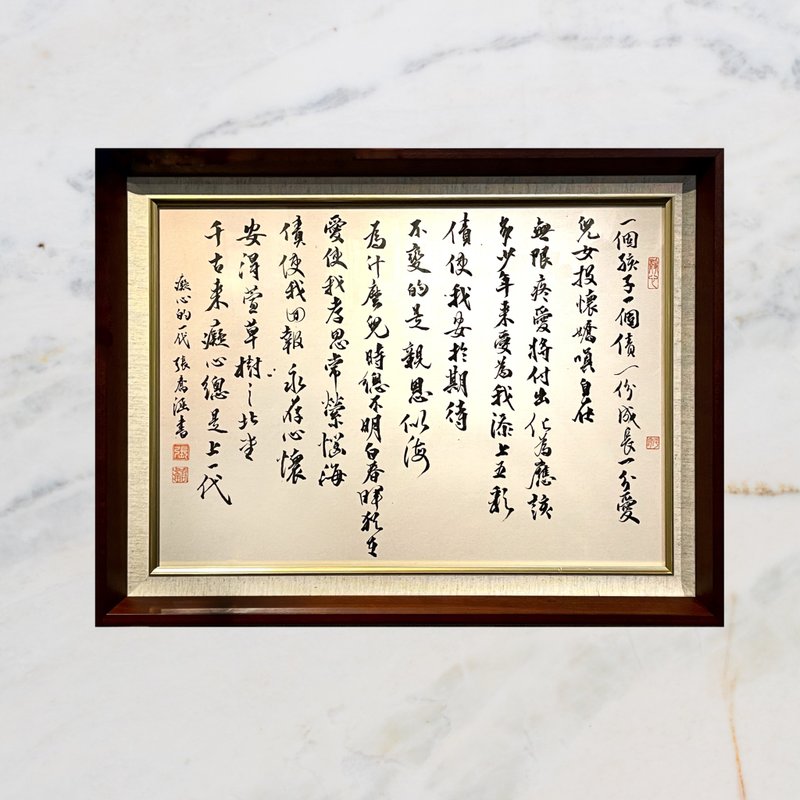 一個孩子一個債一份成長一分愛
兒女投懷嬌嗔自在
無限疼愛將付出化為應該
多少年來愛為我添上五彩
債使我安於期待
不變的是親恩似海
為什麼兒時總不明白春暉猶在
愛使我孝思常縈腦海
債使我回報永存心懷
安得萱草樹之北堂
千古來癡心總是上一代
癡心的一代 張喬涵書